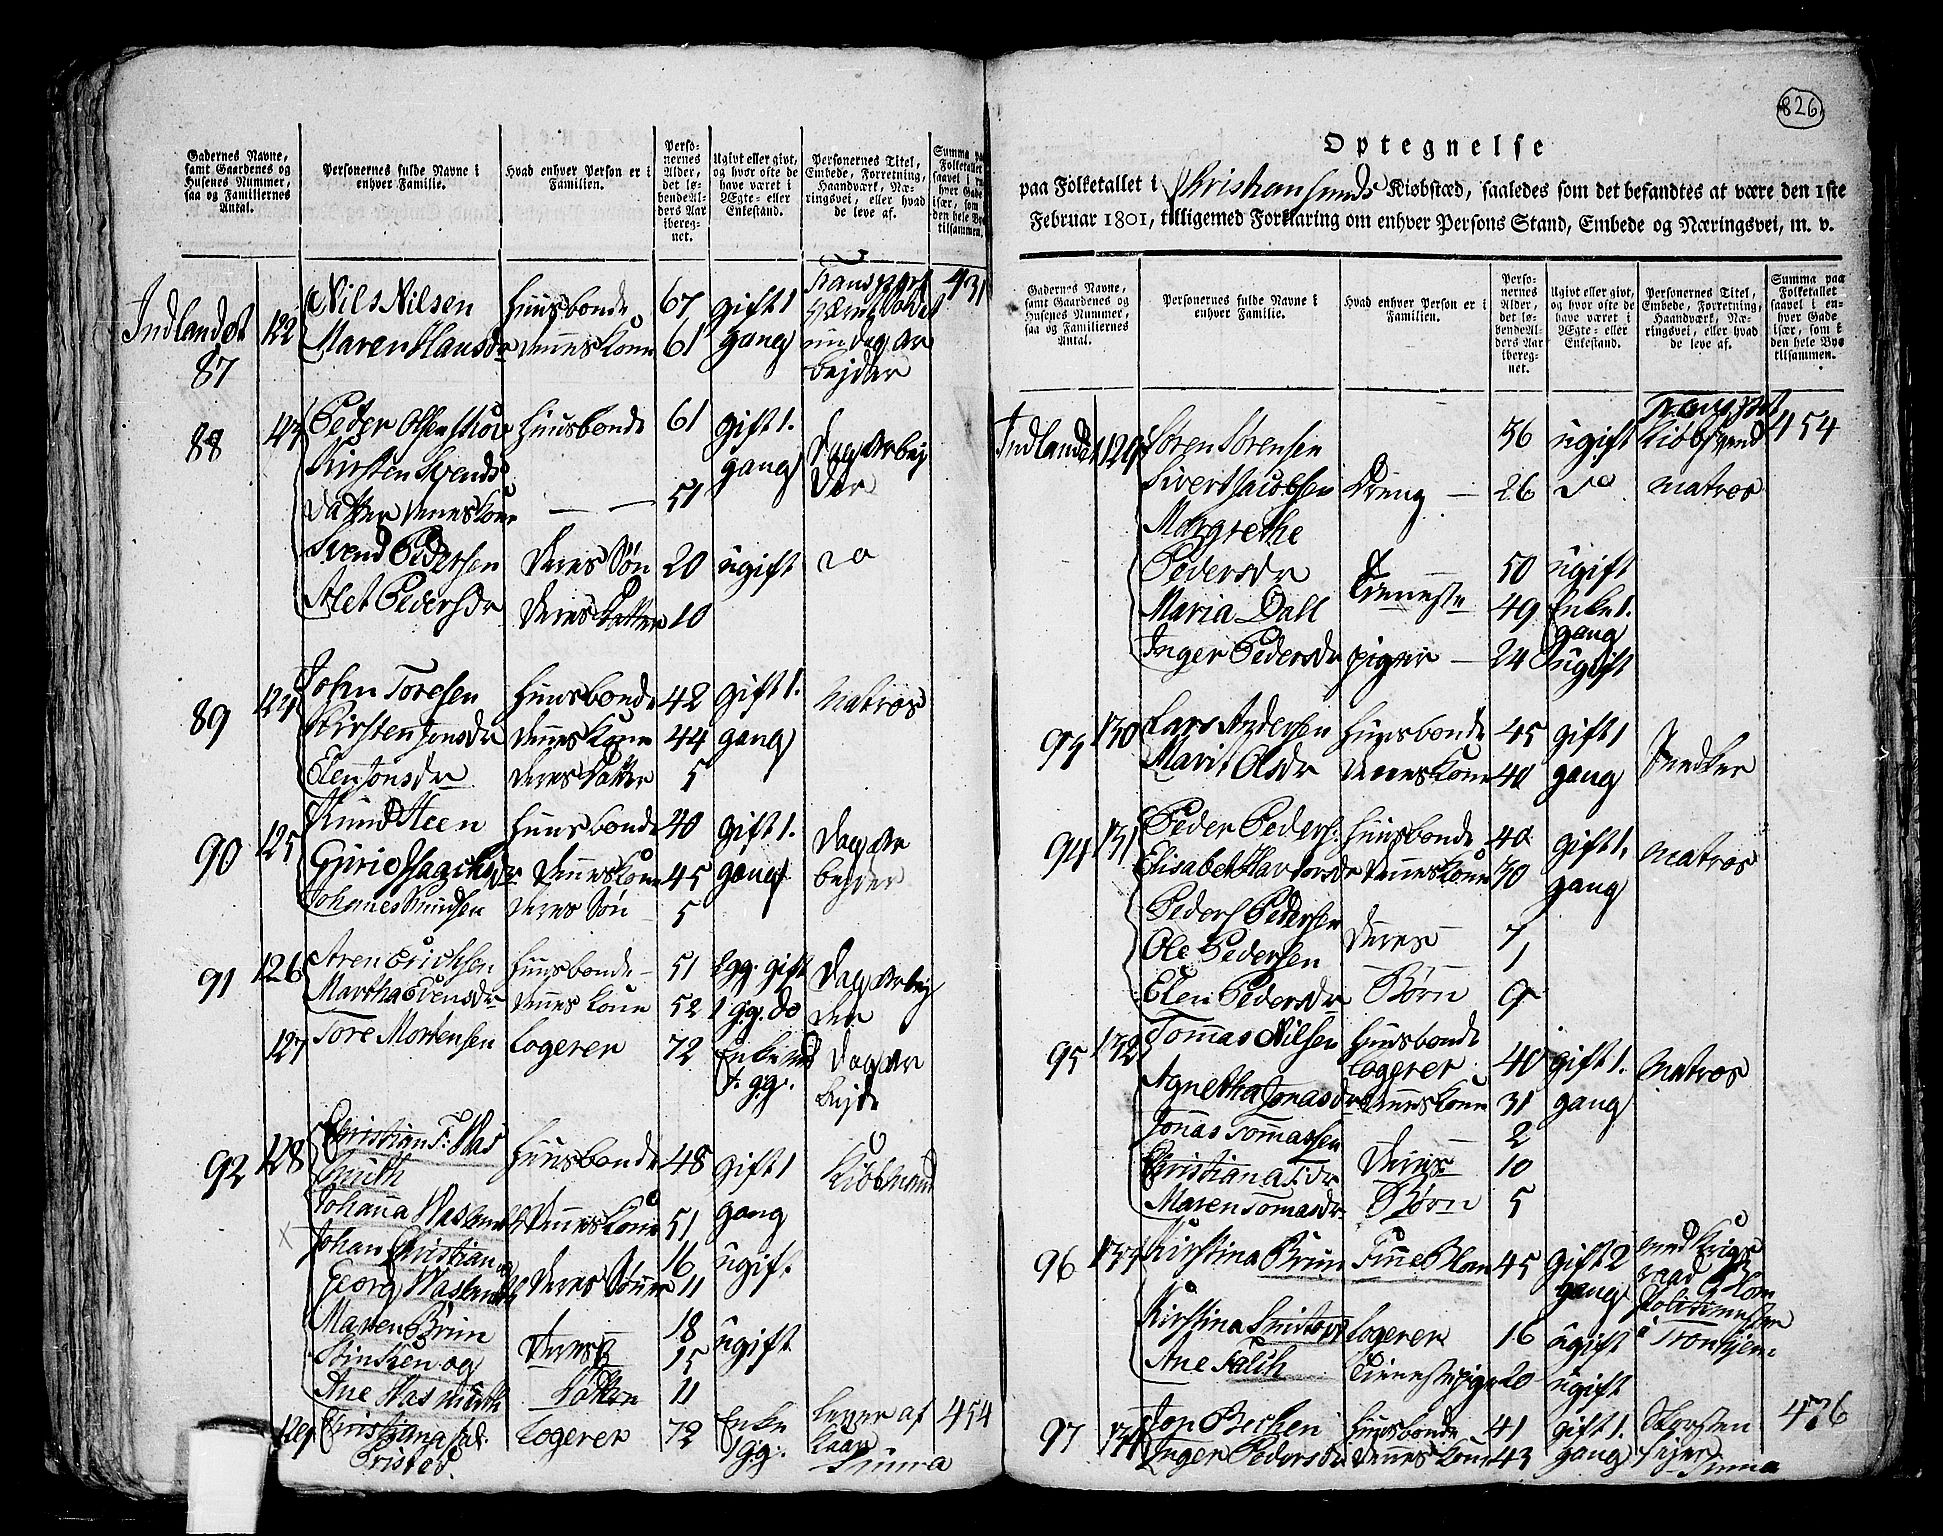 Gadernes Navne, samt Gaardenes og Husenes Nummer, saa og Familiernes Antal.
Personernes fulde Navne i enhver Familie.
Hvad enhver Person er i Familien.
Personernes Alder, det løbende Alders Aar iberegnet.
Ugivt eller givt, og hvor ofte de have været i Ægte- eller Enkestand.
Personernes Titel, Embede, Forretning, Haandværk, Næringsvei, eller hvad de leve af.
Summa paa Folketallet saavel i enhver Gade især, som i den hele Bye tilsammen.
Transport 431
Indlandet 87 122 Nils Nilsen Huusbonde 67 gift 1
Maren Hansdr Dennes Kone 61 gang
bejder
88 123 Peder Olsen Huusbonde 61 gift 1. Dagarbej
Kirsten Svends gang der
datter Dennes Kone — — 51
Svend Pedersen Deres Søn 20 ugift do
Alet Pedersdr Deres Datter 10
89 124 John Toresen Huusbonde 42 gift 1. Matros
Kirsten Jonsdr Dennes Kone 44 gang
Elen Jonsdr Deres Datter 5
90 125 Knud Steen Huusbonde 40 gift 1. Dagar
Guri Dennes Kone 45 gang bejder
Johanes Knudsen Deres Søn 5
91 126 Aren Erichsen Huusbonde 51 2gg. gift Dagarbej
Martha Evensdr Dennes Kone 52 1 gg. do der
127 Tore Mortensen Logerer 72 Enkemd Dagar
1. gg. bejde
92 128 Christian F: Was Huusbonde 48 gift 1 Kiøbmand
muth
Johana Wasmuth Dennes Kone 51 gang
Johan Christian og 16 ugift
Georg Wasmuth Deres Sønner 11
Maren Brun 18 ugift
Stinken og Deres 15
Ane Wasmuth Døttre 11
129 Christiana sal. Logerer 72 Enke lever af 454
Bristed. 1gg. Summa
826
Optegnelse
paa Folketallet i Christiansunds Kiøbstæd, saaledes som det befandtes at være den 1ste
Februar 1801, tilligemed Forklaring om enhver Persons Stand, Embede og Næringsvei, m. v.
Gadernes Navne, samt Gaardenes og Husenes Nummer, saa og Familiernes Antal.
Personernes fulde Navne i enhver Familie.
Hvad enhver Person er i Familien.
Personernes Alder, det løbende Alders Aar iberegnet.
Ugivt eller givt, og hvor ofte de have været i Ægte- eller Enkestand.
Personernes Titel, Embede, Forretning, Haandværk, Næringsvei, eller hvad de leve af.
Summa paa Folketallet saavel i enhver Gade især, som i den hele Bye tilsammen.
Transport 454
Indlandet 129 Søren Sørensen 36 ugift Kiøbsvend
Sivert Jacobsen Dreng — 26 do Matros
Margrethe
Pedersdr Tieneste 50 ugift
Maria Dall 49 Enke 1. gang
Inger Pedersdr piger — 24 ugift
93 130 Lars Andersen Huusbonde 45 gift 1 Snedker
Marit Olsdr Dennes Kone 40 gang
94 131 Peder Peders: Huusbonde 40 gift 1. Matros
Elisabet Dennes Kone 30 gang
Peders Pedersen Deres 7
Ole Pedersen 1
Elen Pedersdr Børn 9
95 132 Tomas Nilsen Huusbonde Logerer 40 gift 1. Matros
Agnetha Jonasdr Dennes Kone 31 gang
Jonas Tomassen 2
Christiana T:dr Deres 10
Maren Tomasdr Børn 5
96 133 Kirstina Brun Frue Blom 45 gift 2 med Krigs
gang raad Blom
Politimester
Kirstina Logerer 16 ugift i Tronhjem
Ane Falch Tienestepige 20 ugift
97 134 Jon Bechen Huusbonde 41 gift 1. Skorsten 476
Inger Pedersdr Dennes Kone 43 gang fejer Summa